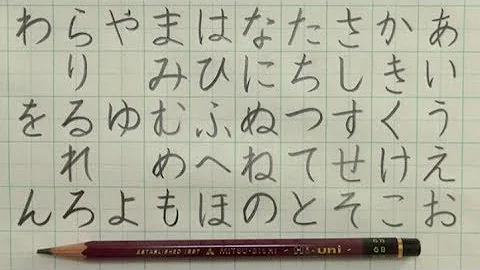 あいうえお
かきくけこ
さしすせそ
たちつてと
なにぬねの
はひふへほ
まみむめも
やゆよ
らりるれろ
わをん
ESTABLISHED 1887 MITSU-BISHI Hi-uni 6B